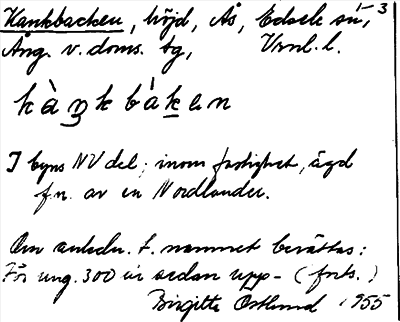 Hankbacken, höjd, Ås, Edsele sn, 1-3
Ång. v. doms. bg, Vrnl. l.
hàŋkbák̲en
I byns NV del; inom fastighet, ägd
f.n. av en Nordlander.
Om anledn. t. namnet berättas:
För ung. 300 år sedan upp- (forts.)
Birgitta Östlund 1955